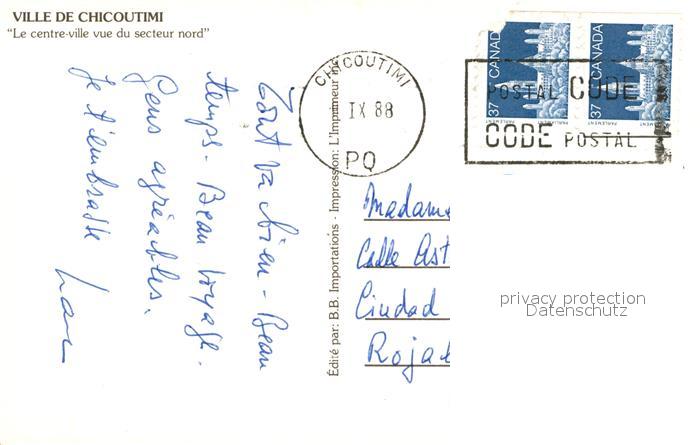 VILLE DE CHICOUTIMI
“Le centre-ville vue du secteur nord”
Tout va bien - Beau
temps - Beau voyage.
Gens agréables.
Je t'embrasse
Édité par: B.B. Importations - Impression: L'Imprimeur
CHICOUTIMI
IX 88
PQ
37 CANADA
PARLEMENT
37 CANADA
PARLEMENT
POSTAL CODE
CODE POSTAL
Madame
Calle Ast
Ciudad
Rojal
privacy protection
Datenschutz